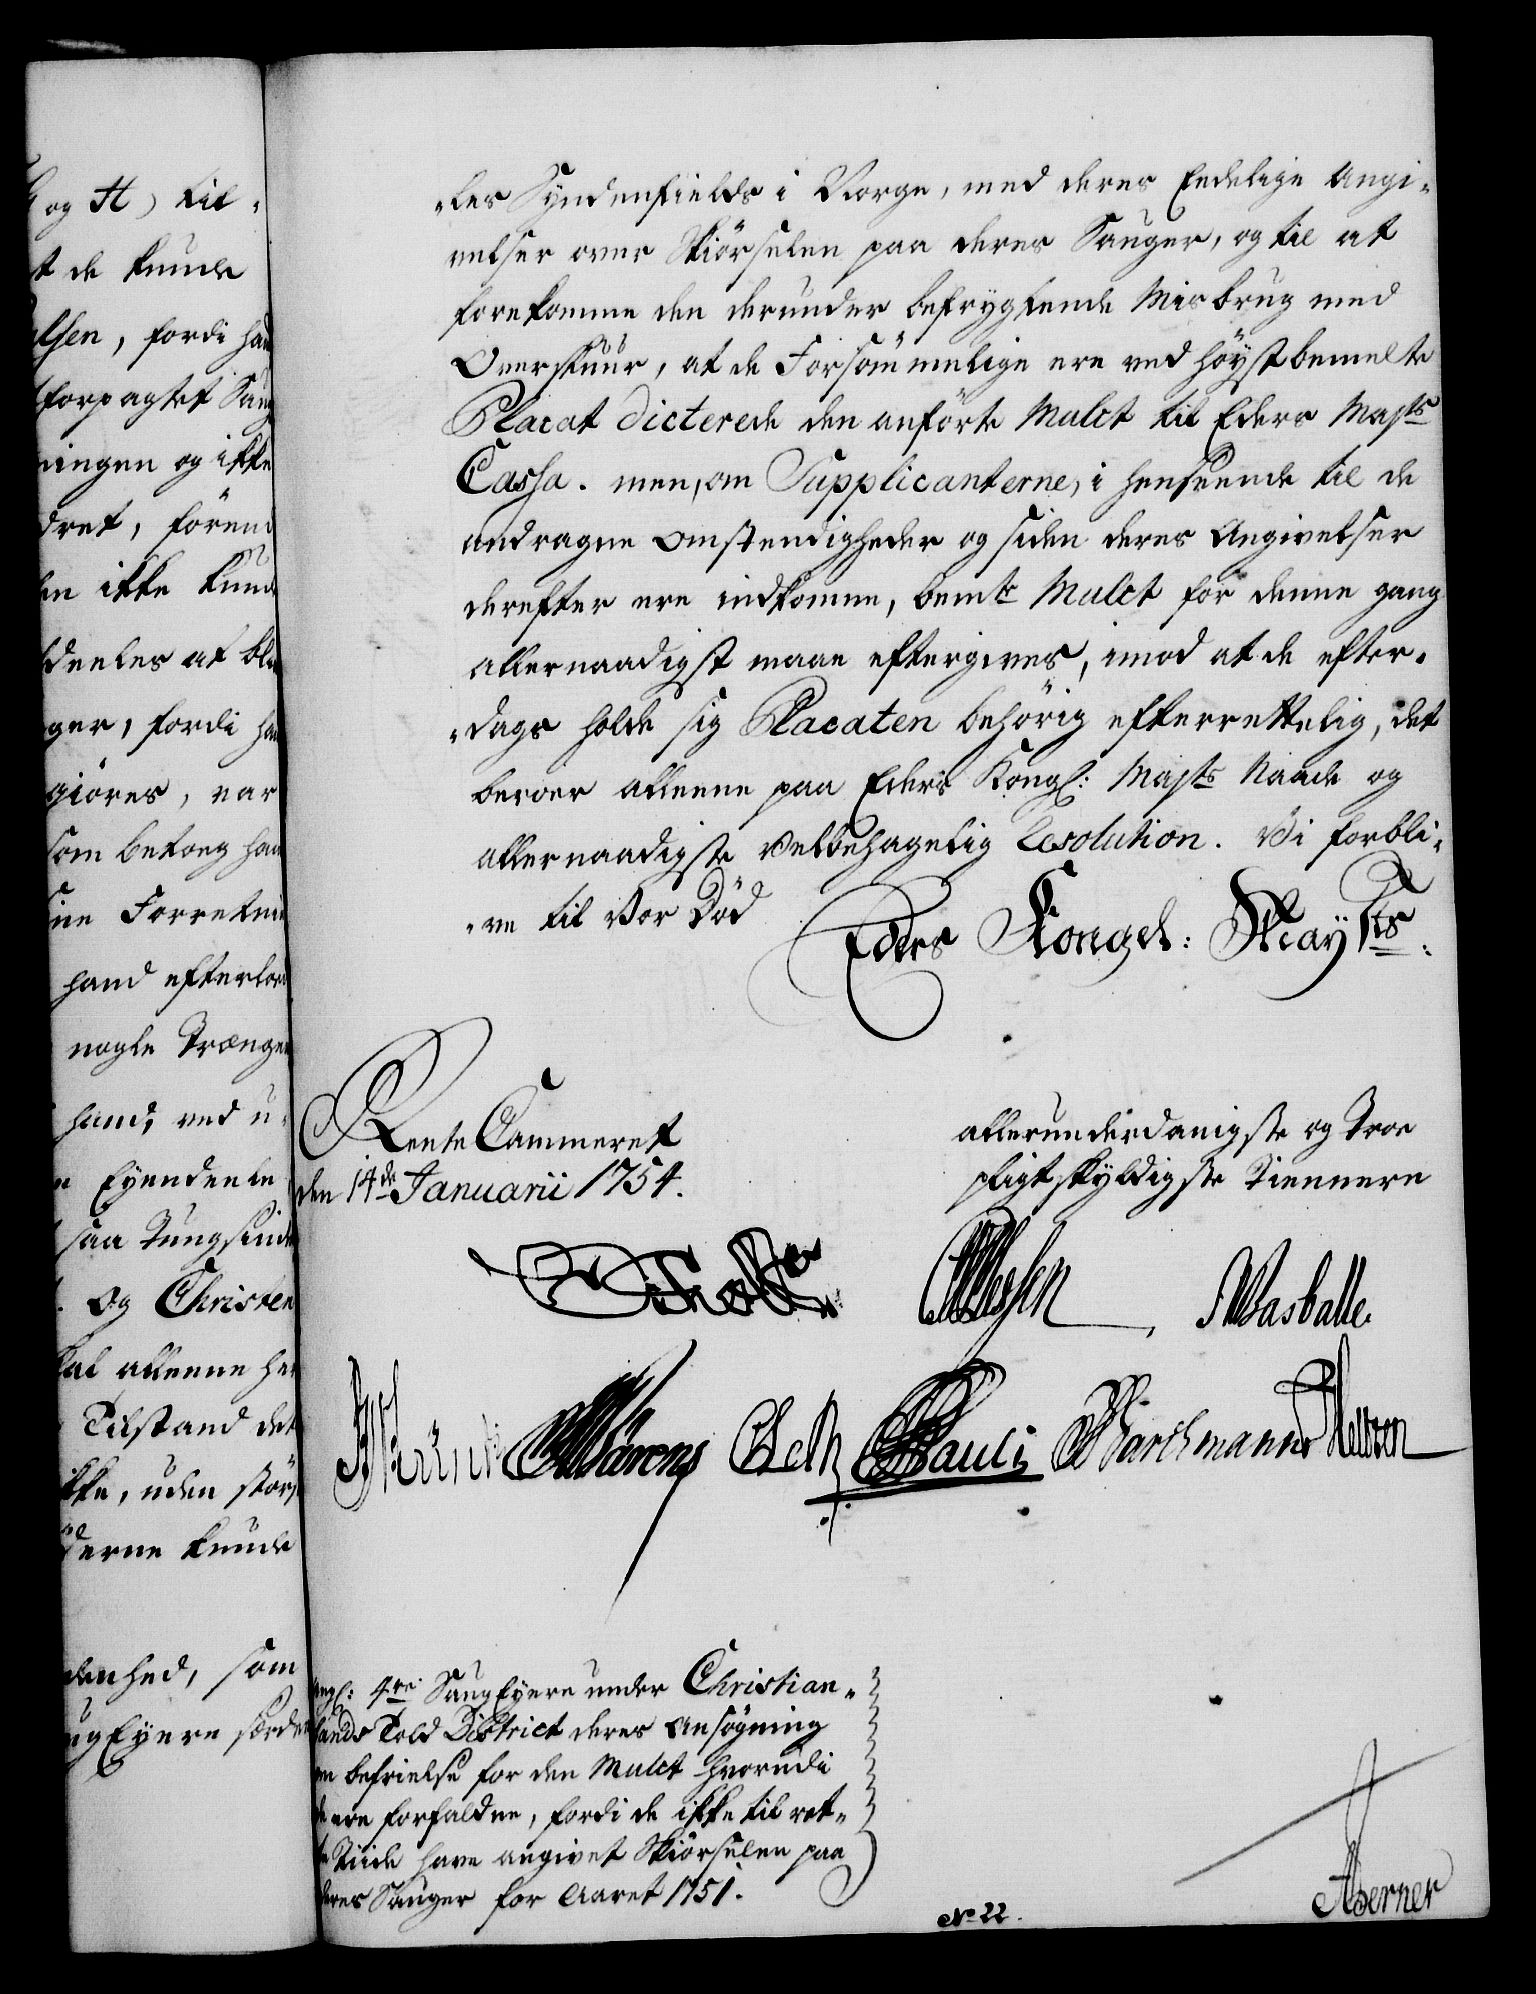 og H) til-
t de kunde
elsen, fordi han
forpagtet Saug
ningen og ikke
dret, förend
en ikke kunde
deeles at bli
ger, fordi han
giöres, var
som betoeg ham
sine Forretni
hand efterlod
nogle Trænge
hand, ved u-
Eyendeele
saa Tungsindi
. Og Christen
tal alleene her
Tilstand det
ikke, uden störs
derne kunde
denhed, som
ugEyere særde
"les Syndenfields i Norge, med deres Eedelige Angi-
velser over Skiörselen paa deres Sauger, og til at
forekomme den derunder befrygtende Misbrug med
Overskuur, at de Forsömmelige ere ved höystbemelte
Placat dicterede den anförte Mulct til Eders Majts
Cassa. men, om Supplicanterne, i henseende til de
andragne Omstendigheder og siden deres Angivelser
derefter ere indkomne, bemte Mulct for denne gang
allernaadigst maae eftergives, imod at de efter-
"dags holde sig Placaten behörig efterrettelig, det
beroer alleene paa Eders Kongl: Majts Naade og
allernaadigste velbehagelig Resolution. Vi forbli-
"ve til Vor Död
Eders Kongel: Mayts.
Rente Cammeret
den 14de Januarii 1754.
allerunderdanigste og Troe
pligtskyldigste Tiennere
Holst
Wasballe
Pauli Barchmann
angl: 4re SaugEyere under Christian-
sands Told District deres Ansögning
om befrielse for den Mulct hvorudi
de ere forfaldne, fordi de ikke til ret-
te Tiide have angivet Skiörselen paa
deres Sauger for Aaret 1751.
No 22.
Berner